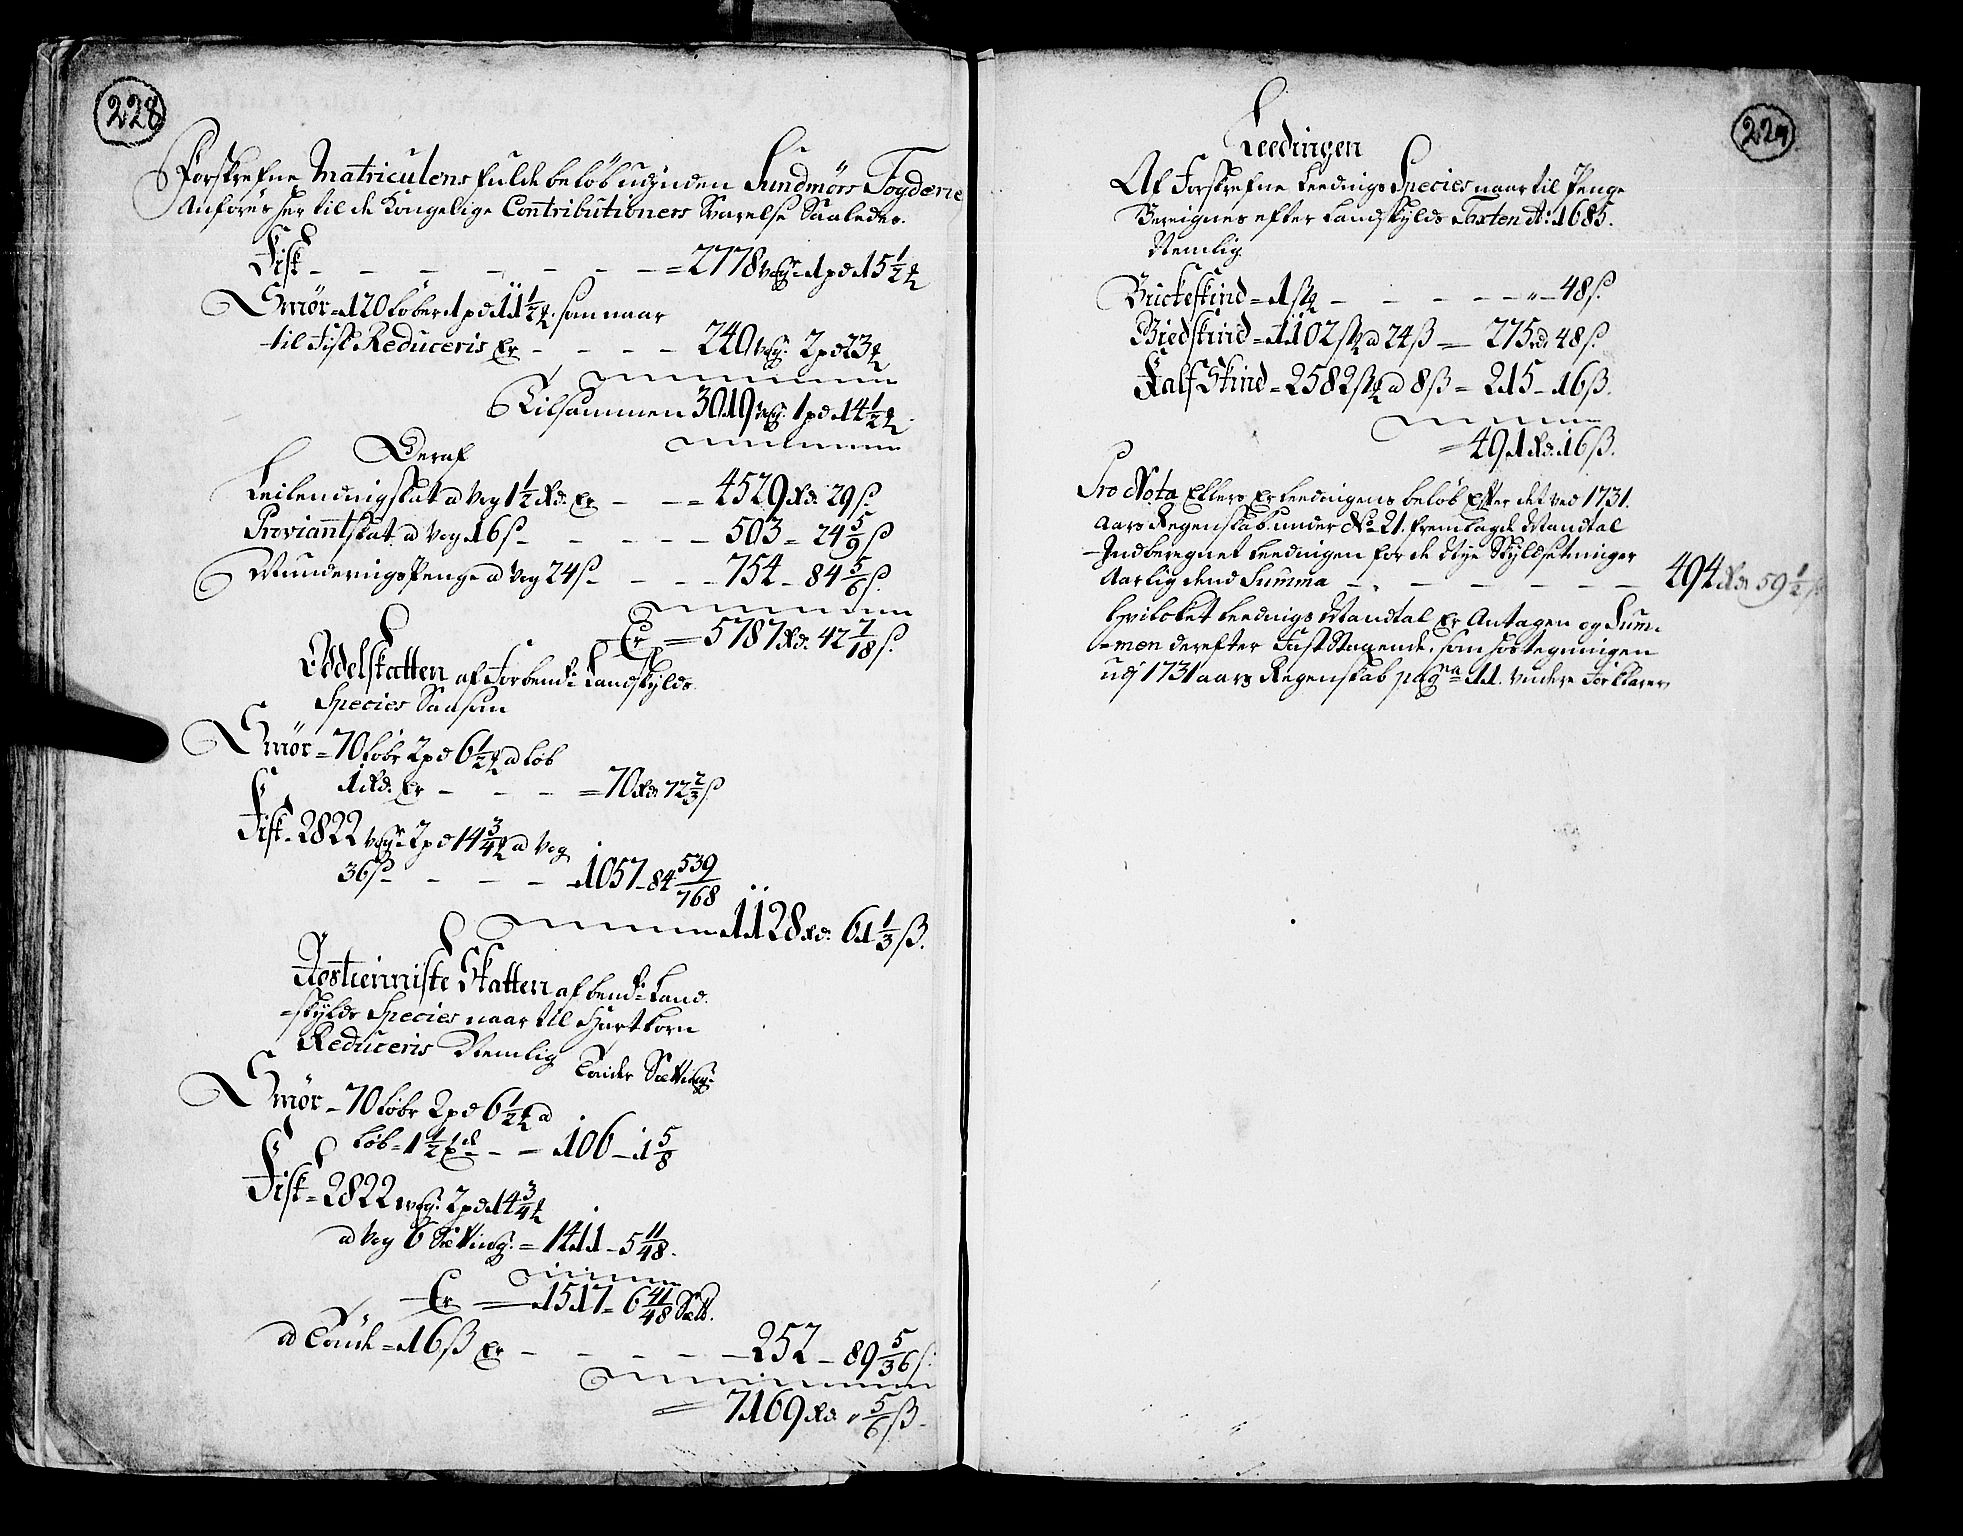 228
Forskrefne Matriculens fulde beløb udj den Sundmørs Fogderie
Anføres her til de Kongelige Contributioners Svarelse Saaledes.
Fisk - - - - - - = 2778 vog 1 pd 15 1/2 ℔
Smør = 120 løber 1 pd 11 1/2 ℔. som naar
til Fisk Reduceris Er - - - - 240 vog: 2 pd 23 ℔
Tilsammen 3019 vog: 1 pd 14 1/2 ℔
Deraf
Leilendingskat a vog 1 1/2 Rd. Er - - = 4529 Rd. 29 ß.
Proviantskat a vog 16 ß - - - - 503 - 24 5/9 ß
Munderings Penge a vog 24 ß - - - - 754 - 84 5/6 ß.
Er = 5787 Rd. 42 7/18 ß.
Oddelskatten af forbend: Landskylds
Species Saasom
Smør = 70 løber 2 pd 6 1/2 ℔ a løb
1 Rd. Er - - - = 70 Rd 72 2/3 ß
Fisk = 2822 vog 2 pd 14 3/4 ℔ a vog
36 ß - - - - 1057 - 84 539/768
1128 Rd. 61 1/3 ß.
Rostienniste Skatten af bend: Land-
skylds Species naar til Hartkorn
Reduceris Nemlig
Tønder Sætting
Smør = 70 løbr 2 pd 6 1/2 ℔ a
løb = 1 1/2 - - 106 - 1 5/8
Fisk = 2822 vog: 2 pd 14 3/4 ℔
a vog 6 Sætting: = 1411 - 5 11/48.
Er = 1517 - 6 41/48 Sætt.
a Tønde = 16 ß Er - - - - - 252 - 89 5/36 ß.
= 7169 Rd. " 5/6 ß.
229
Leedingen
Af Forskrefne Leedings Species naar til Penge
Bereignes efter Landskylds Taxten Ao: 1685.
Nemlig.
Buckeskind = 1 stk - - - - - " - 48 ß.
Biedskind = 1102 stk a 24 ß = 275 rd 48 ß.
Kalfskind = 2582 stk a 8 ß = 215 - 16 ß.
= 491 Rd. 16 ß.
Pro Nota Ellers Er Leedingens beløb Efter det ved 1731.
Aars Regenskab under No 21. fremlagde Mandtal
Indberegnet Leedingen for de Nye Skyldsetninger
Aarlig dend Summa - - - - - 494 Rd 59 1/2 ß
Hvilcket Leedings Mandtal Er Antagen og Sum-
men derefter Fast Staaende, som hostegningen
udj 1731 aars Regenskab pagna 11. videre Forklarer